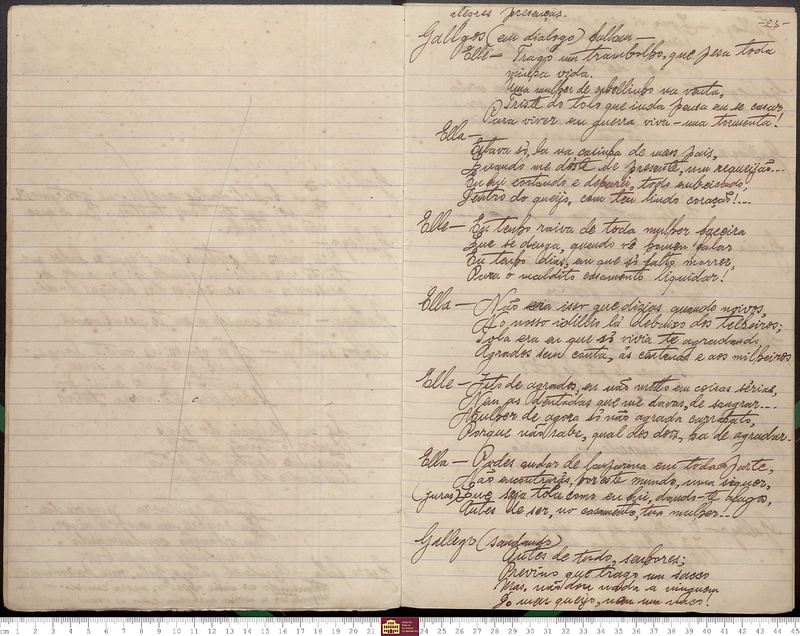 alegres presenças.
-23-
Gallegos (em dialogo) fallam —
Elle — Trago um trambolho, que pesa toda
minha vida.
Uma mulher de cabellinho na venta,
Triste do tolo que inda pensa em se casar
Para viver em guerra viva — uma tormenta!
Ella —
Estava só, la na casinha de meus pais,
Quando me déste de presente, um requeijão...
Eu fui cortando e deparei, todo embeiçado,
Dentro do queijo, com teu lindo coração!...
Elle — Eu tenho raiva de toda mulher faceira
Que se denga, quando vê homem fallar
Eu tenho dias, em que só falta morrer,
Para o maldito casamento liquidar!
Ella — Não era isso que dizias quando noivos,
Ao nosso idillio lá debaixo dos telheiros;
Tola era eu que só vivia te agradando,
Agrados sem conta, ás centenas e aos milheiros
Elle — Isto de agrados, eu não metto em coisas sérias,
Nem as dentadas que me davas, de sangrar...
Mulher de agora só não agrada
Porque não sabe, qual dos dois, ha de agradar.
Ella — Podes andar de lamparina em toda parte,
Não encontrarás, por este mundo, uma siquer,
(juras) Que seja tola como eu fui, dando-te afagos,
Antes de ser, no casamento, tua mulher...
Gallego (saudando)
Antes de tudo, senhores;
Previno que trago um sacco
Mas, não dou nada a ninguem
Do meu queijo, nem um naco!